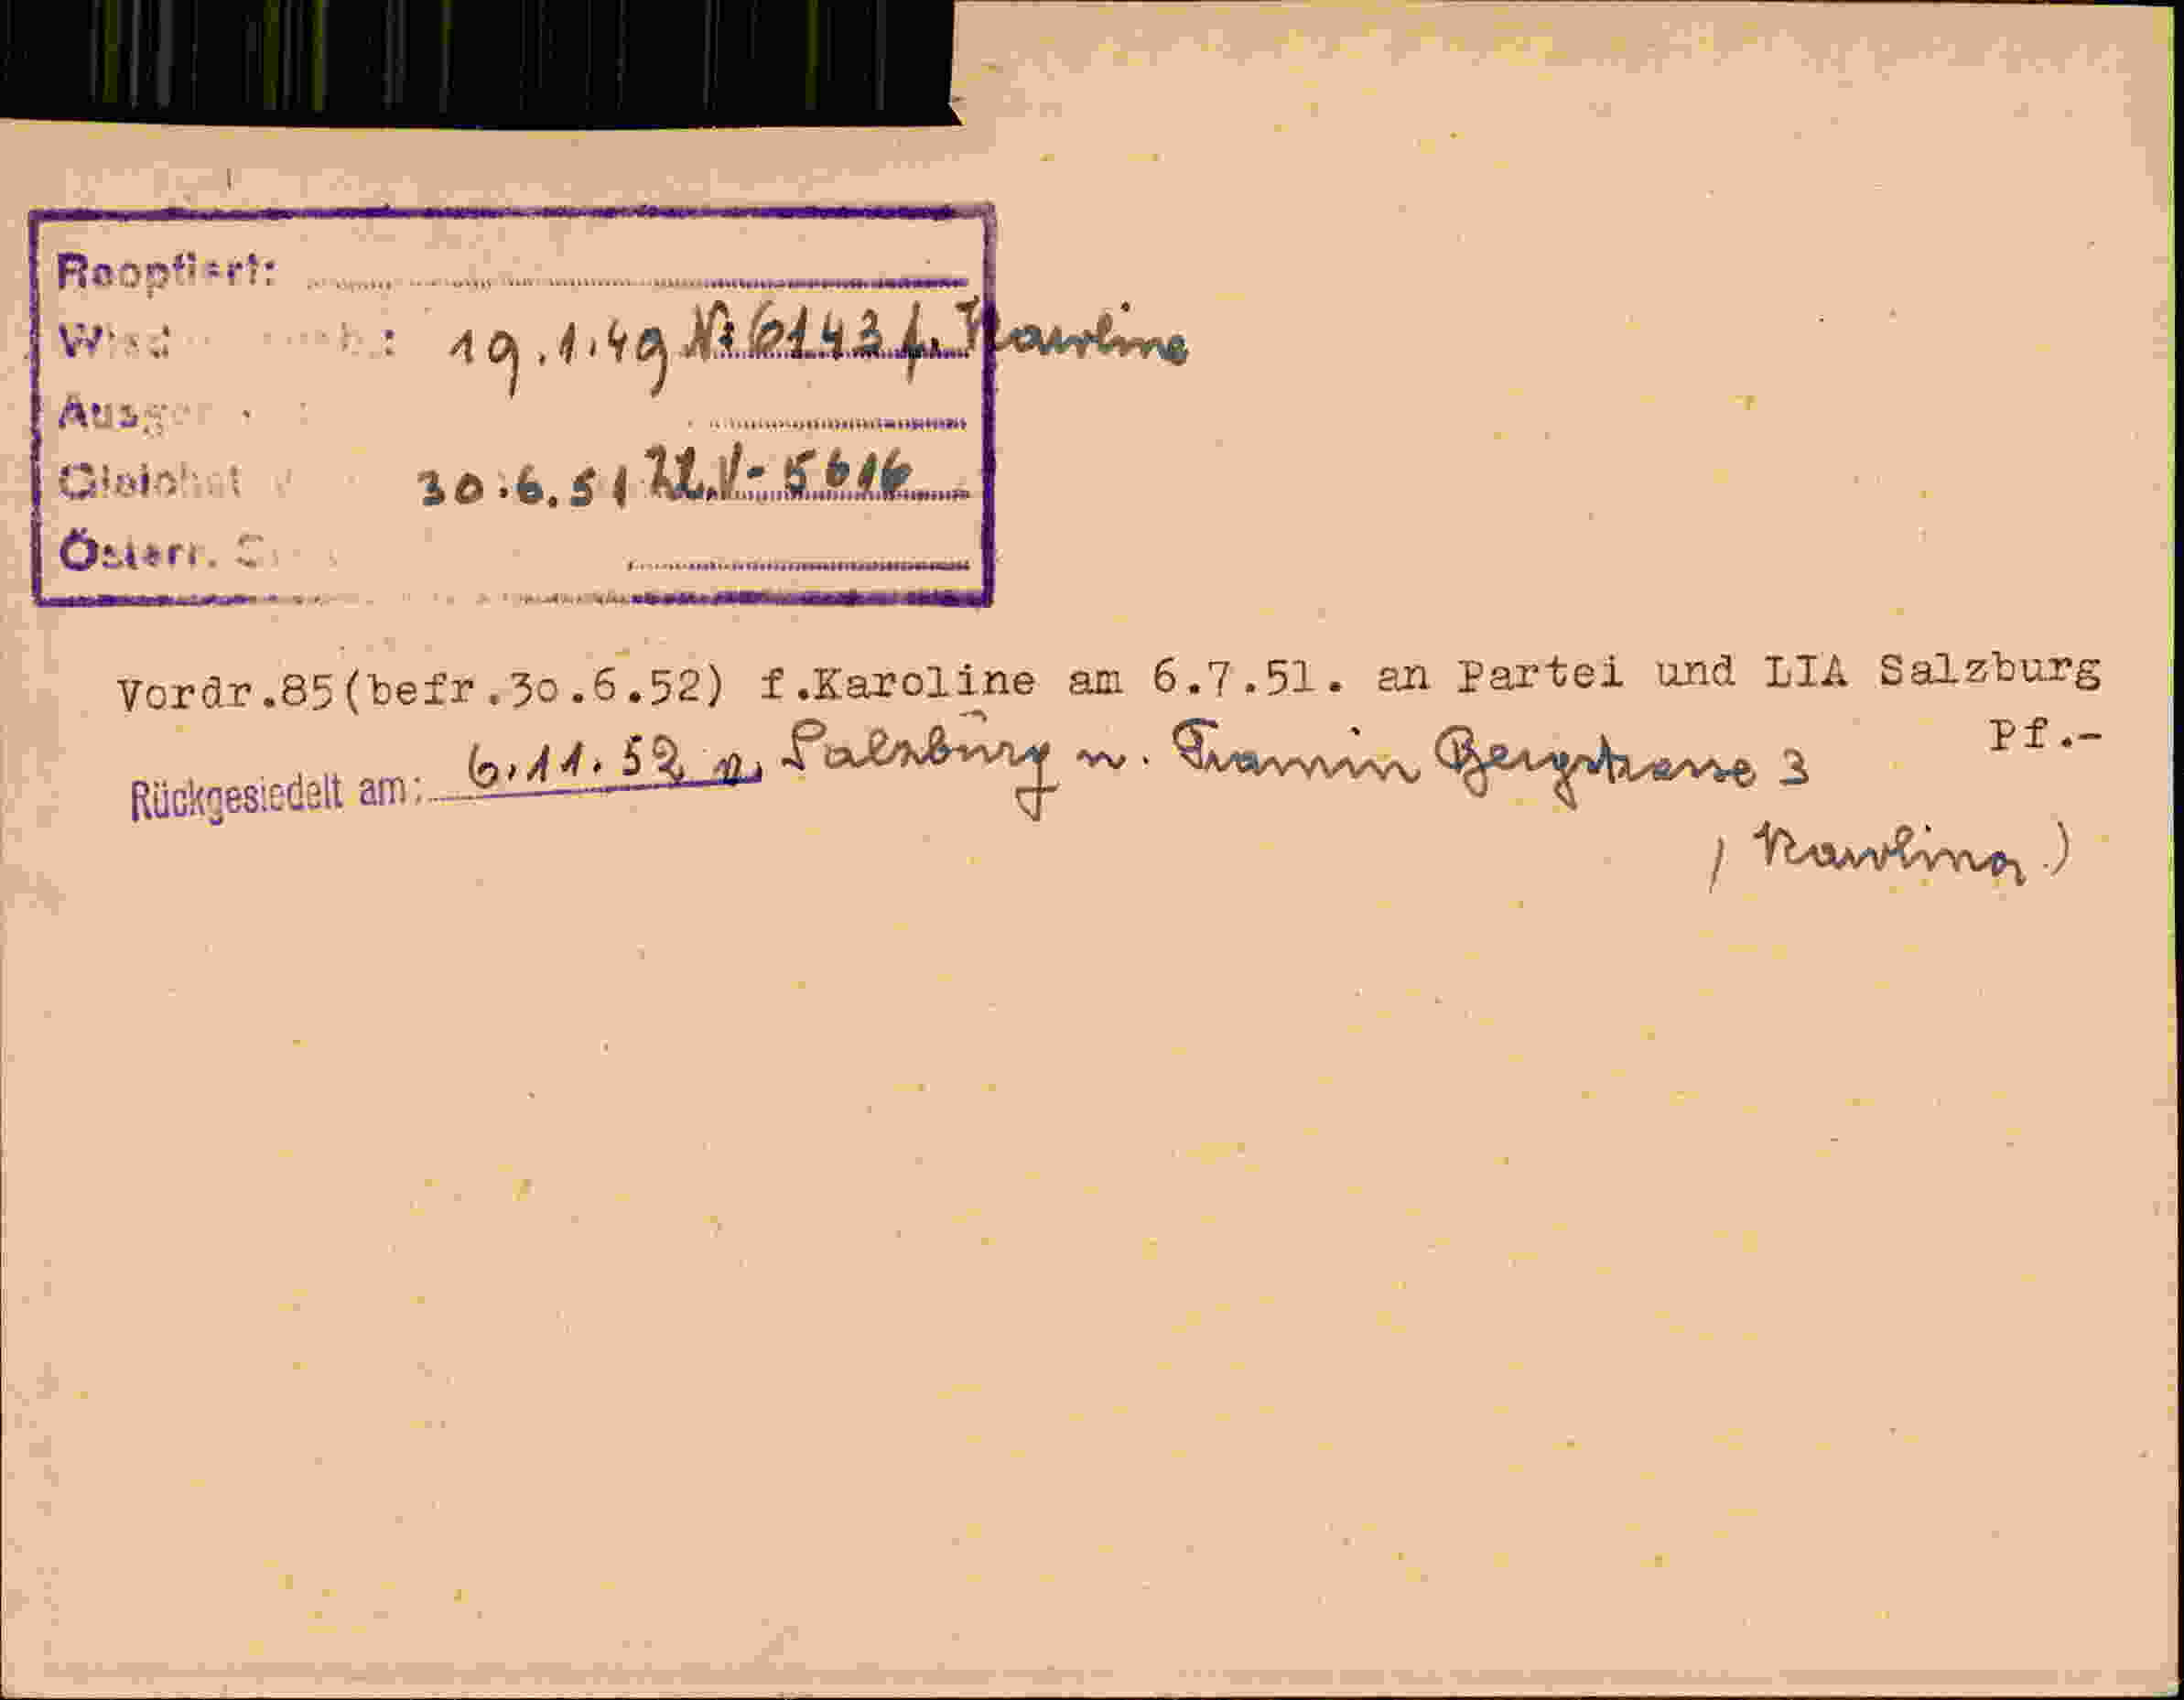 Reoptiert:
19.1.49 Nr 6143 f. Karoline
Ausger
30.6.51 ZL.V- 5616
Österr.
Vordr.85(befr.30.6.52) f.Karoline am 6.7.51. an Partei und LIA Salzburg
Pf.-
Rückgesiedelt am: 6.11.52 v. Salzburg n. Tramin Bergstrasse 3
(Karolina)